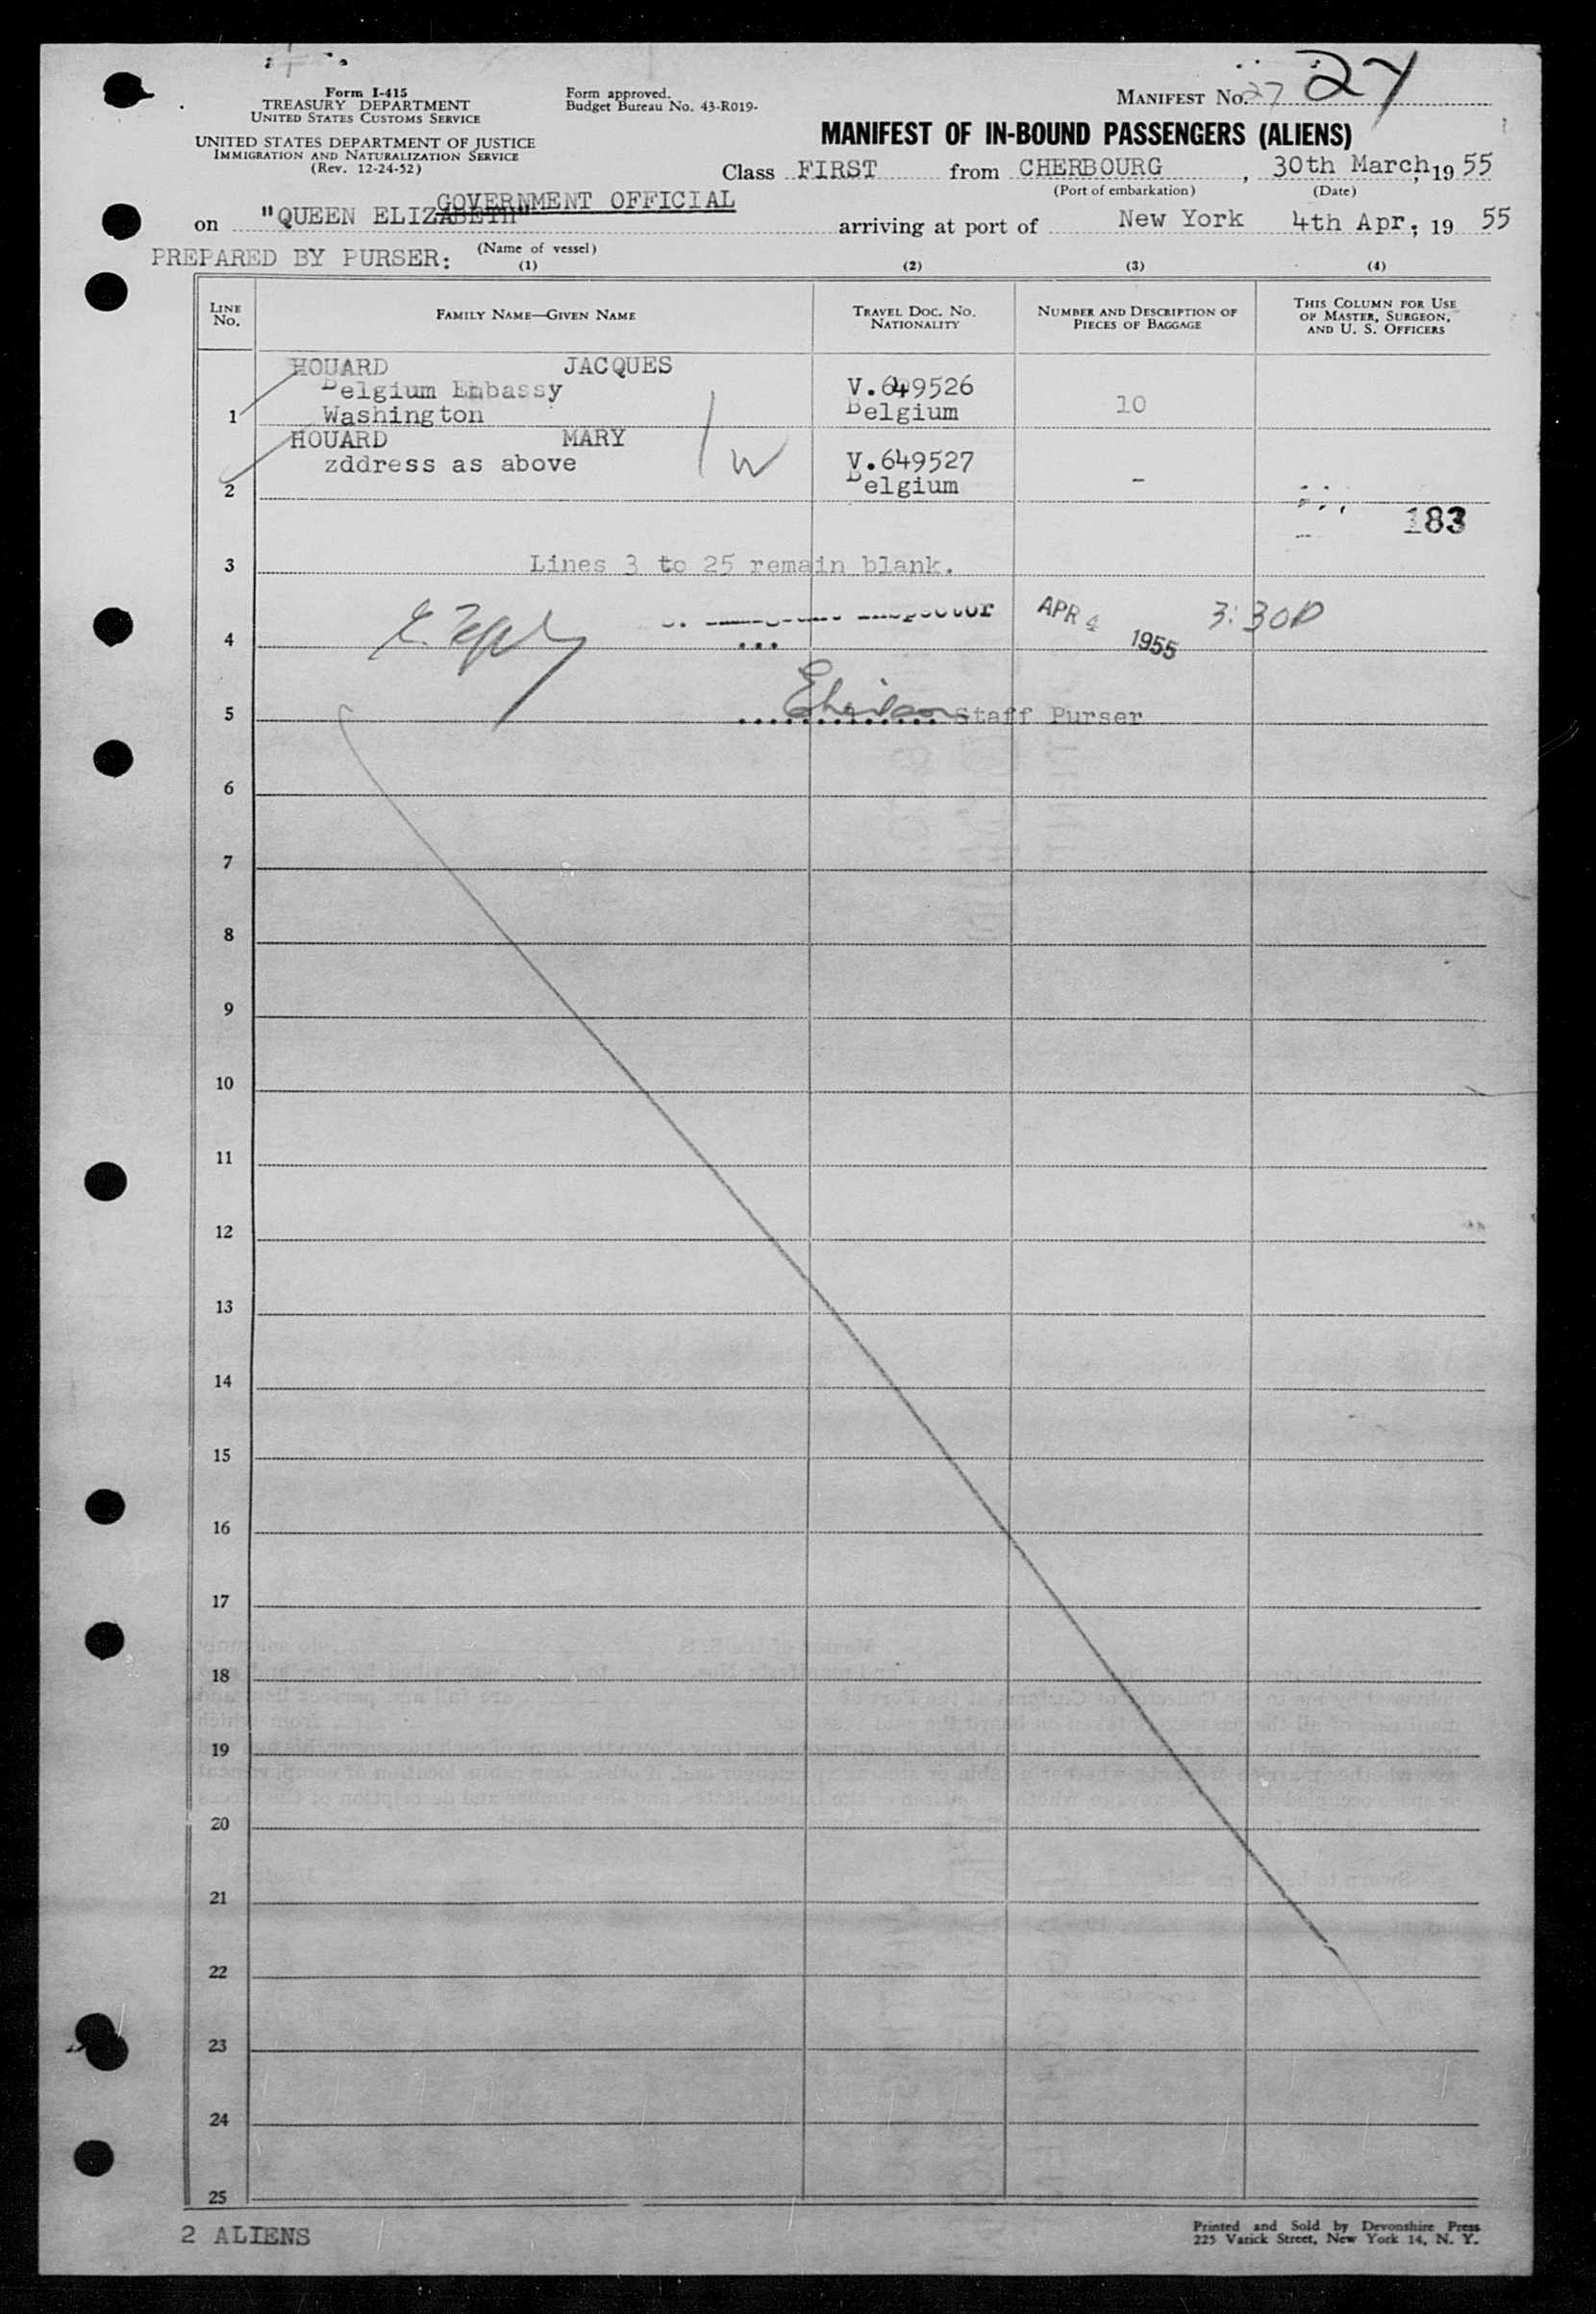 Form I-415
TREASURY DEPARTMENT
UNITED STATES CUSTOMS SERVICE
UNITED STATES DEPARTMENT OF JUSTICE
IMMIGRATION AND NATURALIZATION SERVICE
(Rev. 12-24-52)
Form approved.
Budget Bureau No. 43-R019-
MANIFEST No. 27 27
MANIFEST OF IN-BOUND PASSENGERS (ALIENS)
Class FIRST from CHERBOURG, 30th March, 19 55
(Port of embarkation) (Date)
GOVERNMENT OFFICIAL
on "QUEEN ELIZABETH" arriving at port of New York 4th Apr, 19 55
(Name of vessel)
PREPARED BY PURSER:
(1) (2) (3) (4)
LINE No. FAMILY NAME—GIVEN NAME TRAVEL DOC. NO. NATIONALITY NUMBER AND DESCRIPTION OF PIECES OF BAGGAGE THIS COLUMN FOR USE OF MASTER, SURGEON, AND U. S. OFFICERS
HOUARD JACQUES
Belgium Embassy V.649526
1 Washington Belgium 10
HOUARD MARY
zddress as above W V.649527
2 Belgium -
183
3 Lines 3 to 25 remain blank.
Inspector APR 4 1955 3:30P
4
5 Staff Purser
6
7
8
9
10
11
12
13
14
15
16
17
18
19
20
21
22
23
24
25
2 ALIENS
Printed and Sold by Devonshire Press
225 Varick Street, New York 14, N. Y.